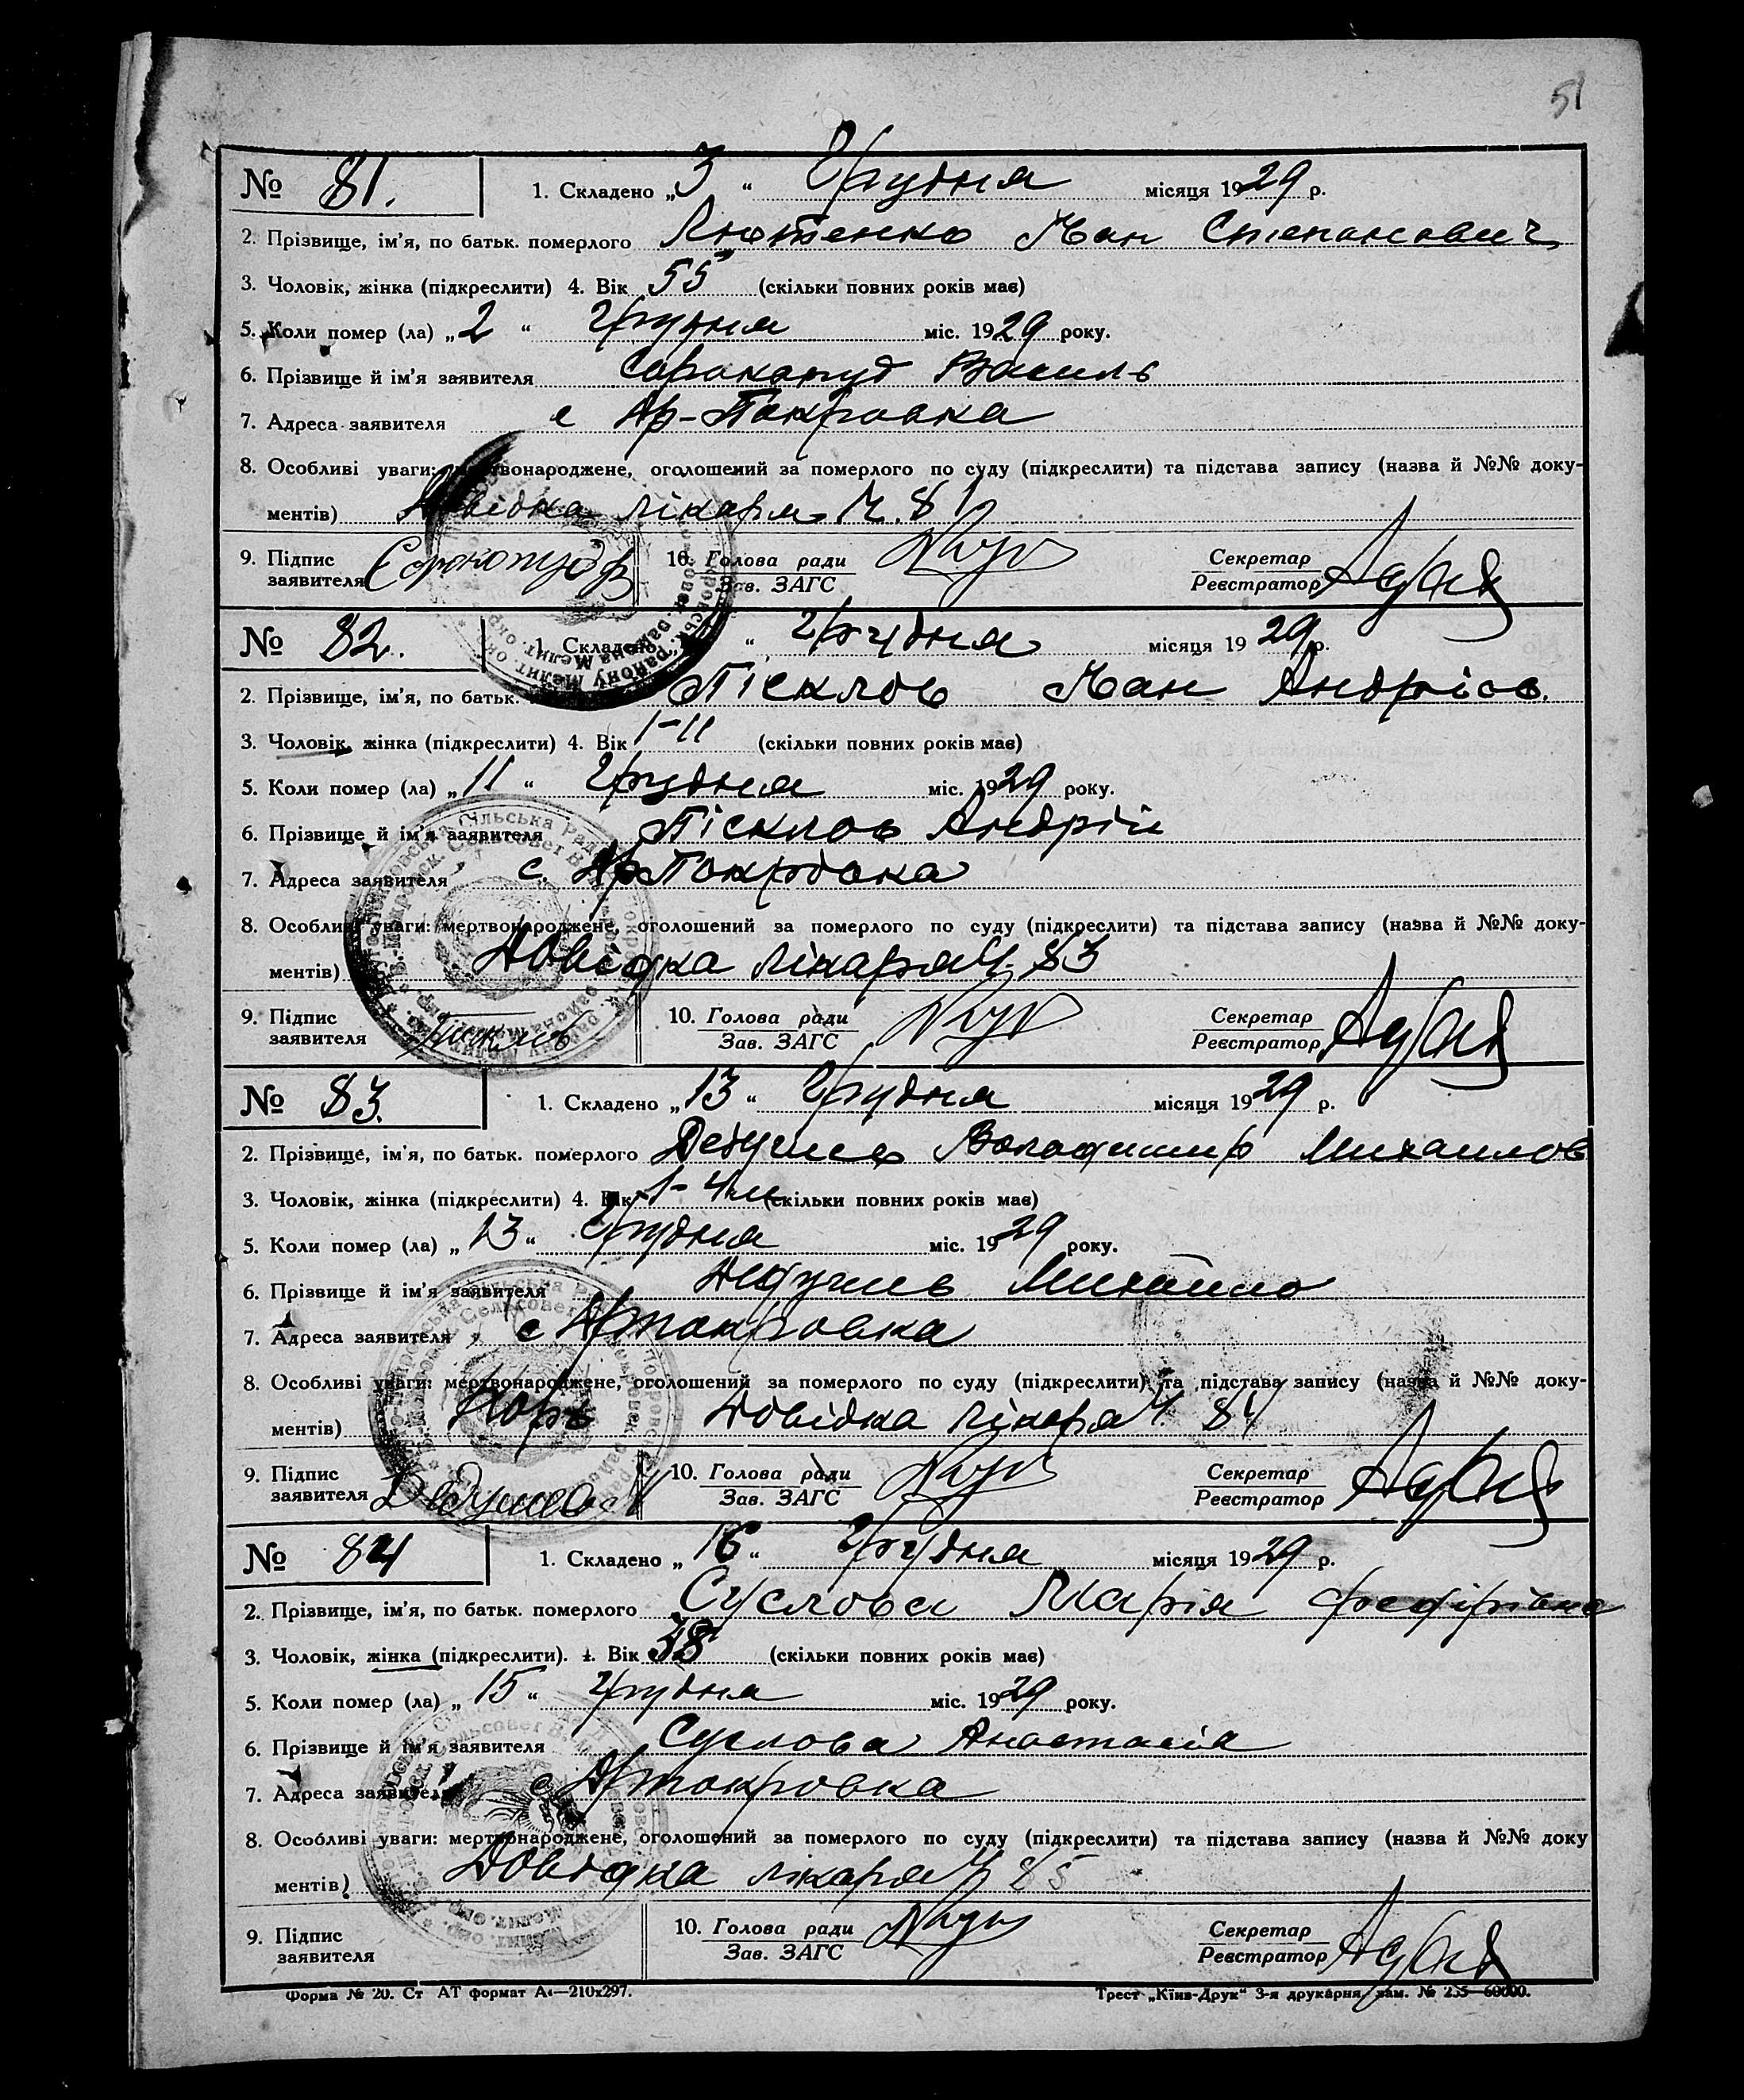 51
№ 81. 1. Складено „3“ Грудня місяця 1929 р.
2. Прізвище, ім'я, по батьк. померлого Лютенко Іван Степанович
3. Чоловік, жінка (підкреслити) 4. Вік 55 (скільки повних років має)
5. Коли помер (ла) „2“ Грудня міс. 1929 року.
6. Прізвище й ім'я заявителя Сорокопуд Василь
7. Адреса заявителя с Нр-Покровка
8. Особливі уваги: мертвонароджене, оголошений за померлого по суду (підкреслити) та підстава запису (назва й №№ доку-
ментів) Довідка лікаря Ч. 81
9. Підпис заявителя Сорокопуд В 10. Голова ради Зав. ЗАГС Секретар Реєстратор
№ 82. 1. Складено “ Грудня місяця 1929 р.
2. Прізвище, ім'я, по батьк. Пісклов Іван Андріов.
3. Чоловік, жінка (підкреслити) 4. Вік 1-11 (скільки повних років має)
5. Коли помер (ла) „11“ Грудня міс. 1929 року.
6. Прізвище й ім'я заявителя Пісклов Андрій
7. Адреса заявителя с. Нр Покровка
8. Особливі уваги: мертвонароджене, оголошений за померлого по суду (підкреслити) та підстава запису (назва й №№ доку-
ментів) Довідка лікаря Ч. 83
9. Підпис заявителя 10. Голова ради Зав. ЗАГС Секретар Реєстратор
№ 83. 1. Складено „13“ Грудня місяця 1929 р.
2. Прізвище, ім'я, по батьк. померлого Дедушев Володимир Михайлов
3. Чоловік, жінка (підкреслити) 4. Вік 1-4м (скільки повних років має)
5. Коли помер (ла) „13“ Грудня міс. 1929 року.
6. Прізвище й ім'я заявителя Дедушев Михайло
7. Адреса заявителя с Нр Покровка
8. Особливі уваги: мертвонароджене, оголошений за померлого по суду (підкреслити) та підстава запису (назва й №№ доку-
ментів) Корь Довідка лікаря Ч 84
9. Підпис заявителя Дедушев 10. Голова ради Зав. ЗАГС Секретар Реєстратор
№ 84 1. Складено „16“ Грудня місяця 1929 р.
2. Прізвище, ім'я, по батьк. померлого Суслова Марія Федірівна
3. Чоловік, жінка (підкреслити). 4. Вік 38 (скільки повних років має)
5. Коли помер (ла) „15“ Грудня міс. 1929 року.
6. Прізвище й ім'я заявителя Суслова Анастасія
7. Адреса заявителя с Нр Покровка
8. Особливі уваги: мертвонароджене, оголошений за померлого по суду (підкреслити) та підстава запису (назва й №№ доку
ментів) Довідка лікаря Ч 85
9. Підпис заявителя 10. Голова ради Зав. ЗАГС Секретар Реєстратор
Форма № 20. Ст АТ формат А4—210х297. Трест „Київ-Друк“ 3-я друкарня, зам. № 255—60000.